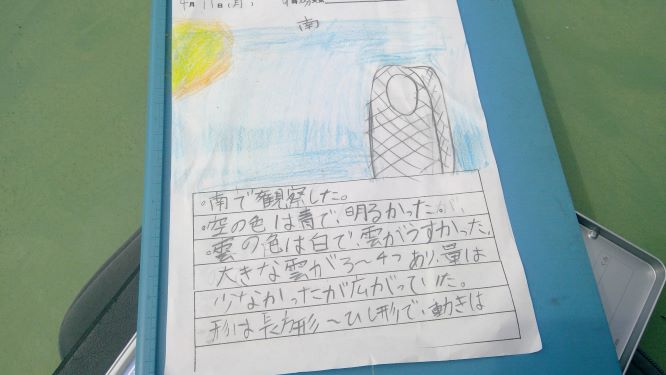 4月11日(月)
南
。南で観察した。
。空の色は青で、明るかった。
。雲の色は白で、雲がうすかった。
大きな雲が3〜4つあり、量は
少なかったが広がっていた。
形は長方形〜ひし形で、動きは